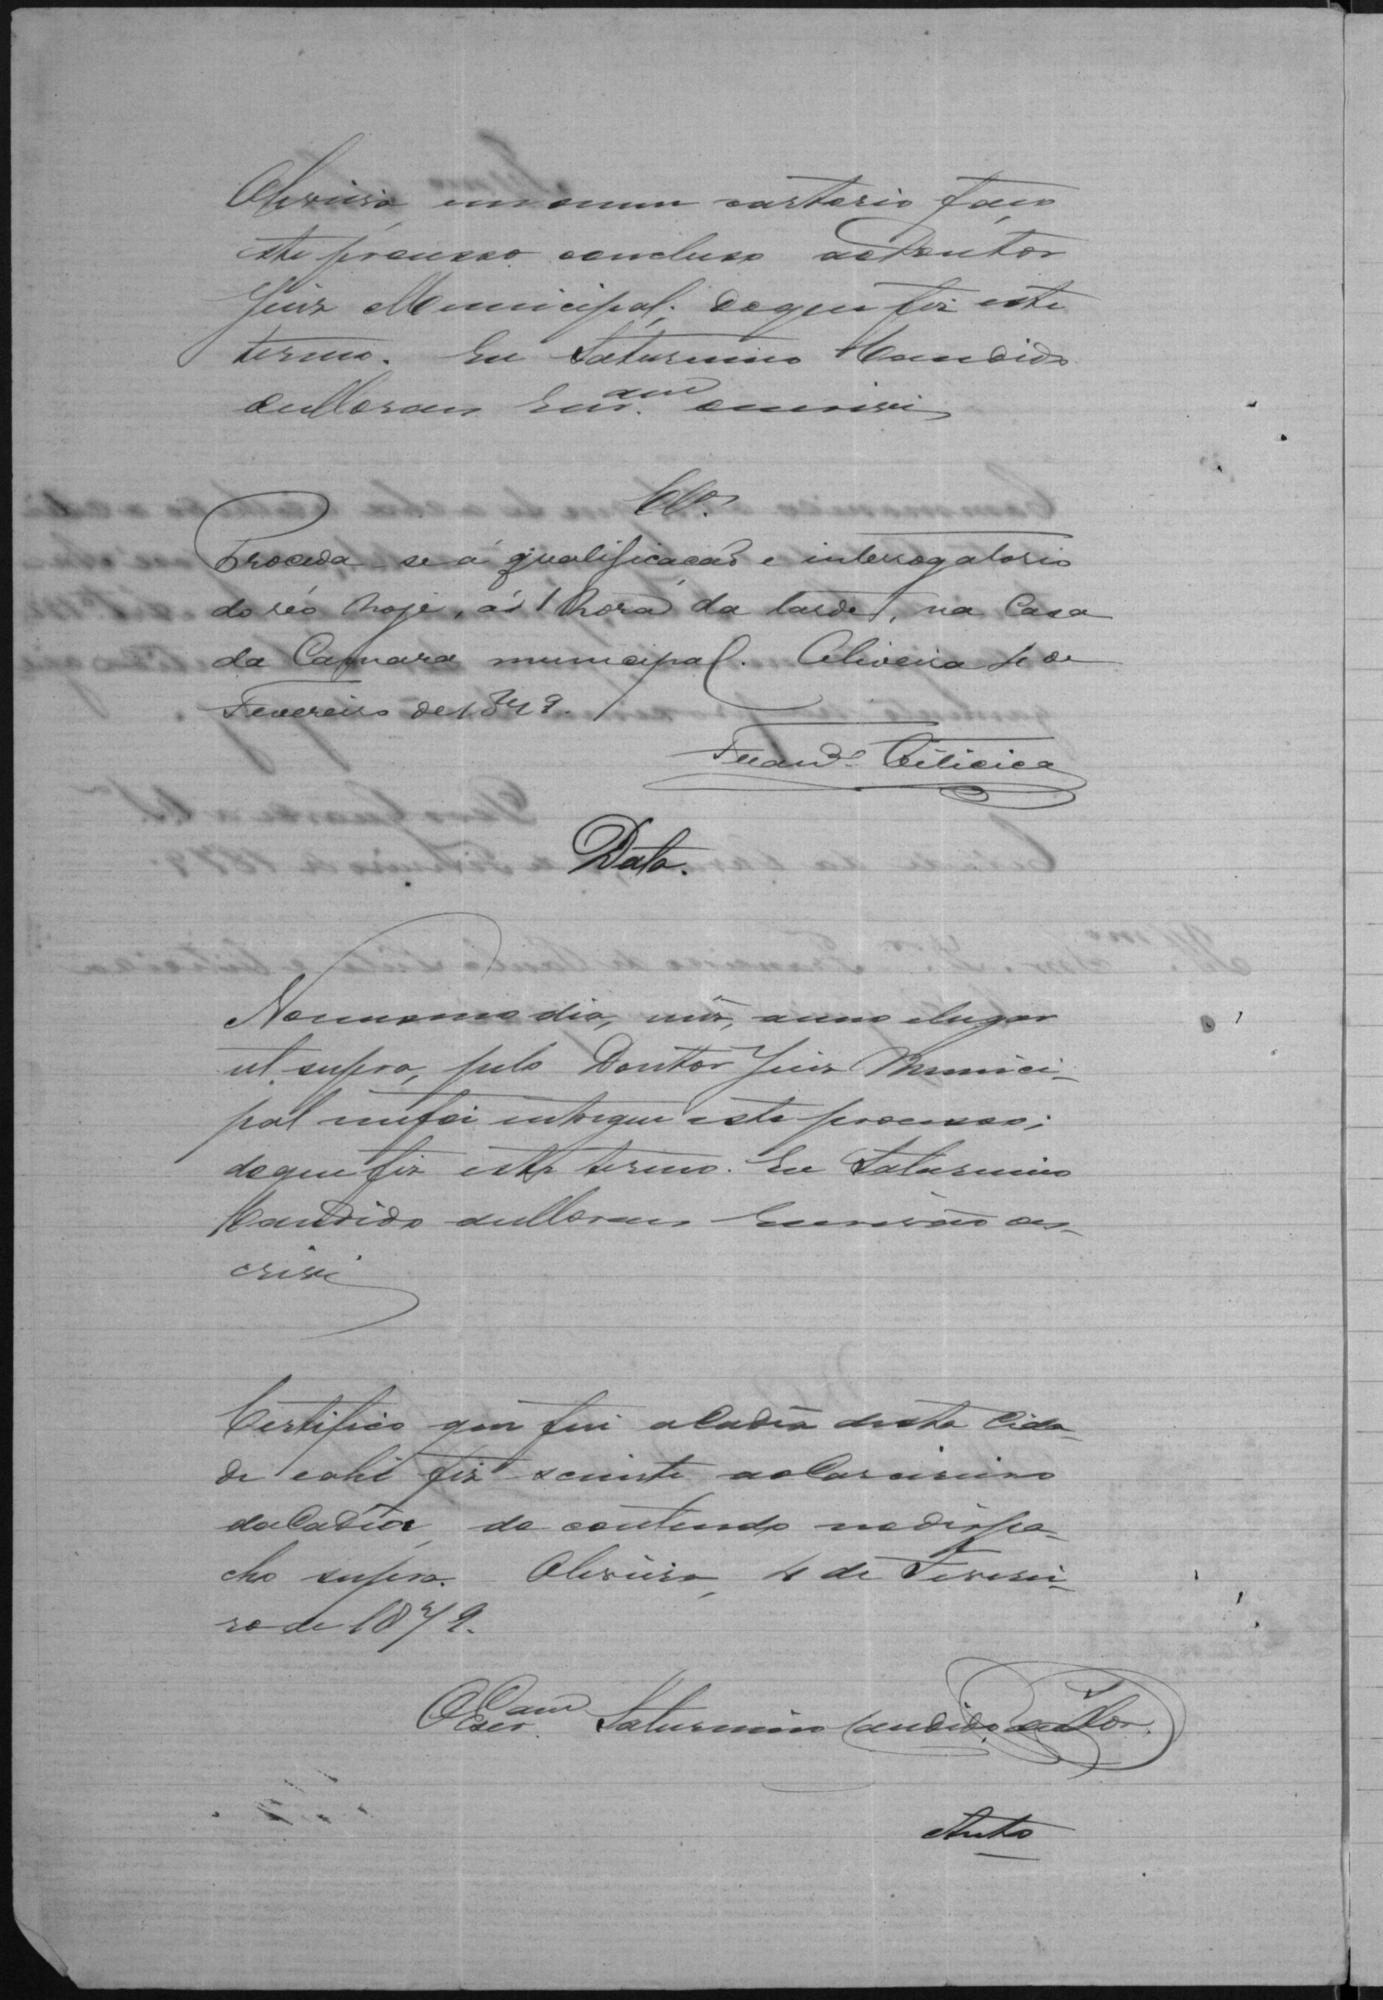 Oliveira, em meu cartorio faço
este processo concluso ao Doutor
Juiz Municipal; do que fiz este
termo. Eu Saturnino Candido
de Moraes Escr.am o escrivi
Cls.
Proceda-se á qualificação e interrogatorio
do réo hoje, ás 1 hora da tarde, na Casa
da Camara municipal. Oliveira 4 de
Fevereiro de 1879.
Data.
No mesmo dia, mez, anno e lugar
ut supra, pelo Doutor Juiz Munici-
pal me foi entregue este processo;
do que fiz este termo. Eu Saturnino
Candido de Moraes Escrivão o es-
crivi
Certifico que fui a Cadêa desta Cida-
de e ahi fiz sciente ao Carcereiro
da Cadêa, do contendo no despa-
cho supra. Oliveira, 4 de Feverei-
ro de 1879.
O Escr.am Saturnino Candido de Mor.
Auto